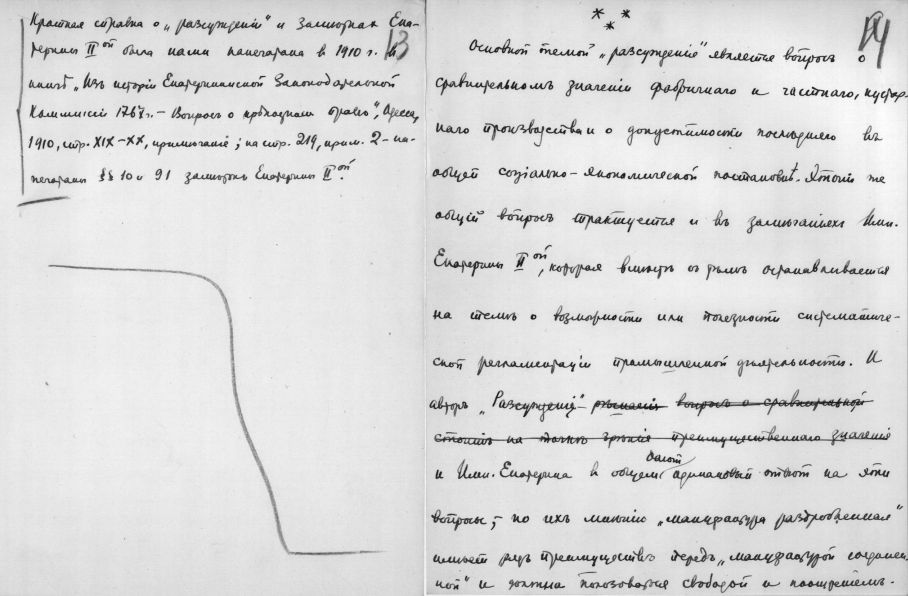 Краткая справка о „разсужденiи" и заметкахъ Ека-
терины IIой была нами напечатана в 1910 г. в
книгѣ „Изъ исторiи Екатерининской Законодательной
Коммиссiи 1767 г. – Вопросъ о крѣпостном правѣ", Одесса,
1910, стр. XIX–XX, примѣчанiе; на стр. 219, прим. 2 – на-
печатаны §§ 10 и 91 заметокъ Екатерины IIой.
13
* * *
14
Основной темой „разсужденiя" является вопросъ о
сравнительномъ значенiи фабричнаго и частнаго, кустар-
наго производства и о допустимости послѣдняго въ
общей соцiально-экономической постановкѣ. Этотъ же
общiй вопросъ трактуется и въ замѣчанiяхъ Имп.
Екатерины IIой, которая вмѣстѣ съ тѣмъ останавливается
на темѣ о возможности или полезности систематиче-
ской регламентацiи промышленной дѣятельности. И
авторъ „Разсужденiя" рѣшенiя вопроса о сравнительной
на точкѣ зрѣнiя преимущественнаго значенiя
и Имп. Екатерина в общемъ дают одинаковый отвѣт на эти
вопросы; – по ихъ мнѣнiю „мануфактура раздробленная"
имѣет ряд преимуществъ передъ „мануфактурой соединен-
ной" и должна пользоваться свободой и поощренiемъ. –